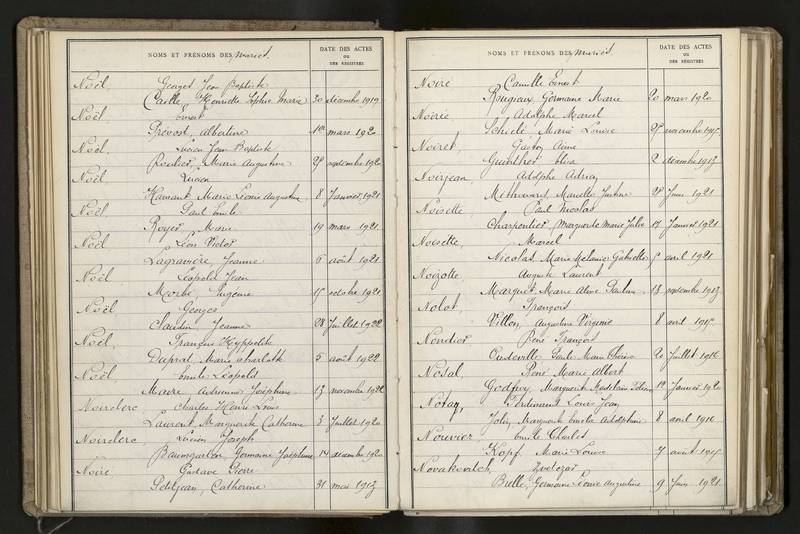 NOMS ET PRÉNOMS DES mariés.
DATE DES ACTES
OU
DES REGISTRES
Noël, Georges Jean Baptiste
Caille, Henriette Sophie Marie 20 décembre 1919
Noël, Ernest
Prévost, Albertine 1er mars 1920
Noël, Lucien Jean Baptiste
Roulier, Marie Augustine 29 septembre 1920
Noël, Lucien
Hamant Marie Léonie Augustine 8 Janvier 1921
Noël Paul Emile
Royer, Marie 19 mars 1921
Noël Léon Victor
Lagravière, Jeanne 6 août 1921
Noël Léopold Jean
Eugénie 15 octobre 1921
Noël Georges
Claudin Jeanne 28 Juillet 1922
Noël, François Hyppolite
Duprat, Marie Charlotte 5 août 1922
Noël, Emile Léopold
Adrienne Joséphine 13 novembre 1922
Noirclerc Charles Henri Louis
Laurent Marguerite Catherine 3 Juillet 1920
Noirclerc Lucien Joseph
Baumgarten, Germaine Joséphine 14 décembre 1920
Noiré Gustave Pierre
Petitjean, Catherine 31 mai 1913
NOMS ET PRÉNOMS DES mariés.
DATE DES ACTES
OU
DES REGISTRES
Noiré Camille Ernest
Germaine Marie 20 mars 1920
Noirié, Adolphe Marcel
Marie Louise novembre
Noiret, Gaston Aimé
Elisa 2 décembre 1913
Noirjean, Adolphe Adrien
28 Juin 1921
Noisette, Paul Nicolas
Charpentier, Marguerite Marie Julie 17 Janvier 1921
Noisette, Marcel
Nicolas, Marie Mélanie Gabrielle 5 avril 1921
Noizotte Auguste Laurent
Marquet, Marie Aline Pauline 13 septembre 1913
Nolot, François
Villon, Augustine Virginie 8 avril
Nordier René François
Marie Thérèse 20 Juillet
Nosal René Marie Albert
Godfroy, Marguerite Madeleine 12 Janvier 1920
Ferdinand Louis Jean
Joly, Marguerite Emélie Adolphine 8 avril
Nouvier, Emile Charles
Kopf, Marie Louise 7 août
Novakovitch,
Brelle, Germaine Léonie Augustine 9 Juin 1921